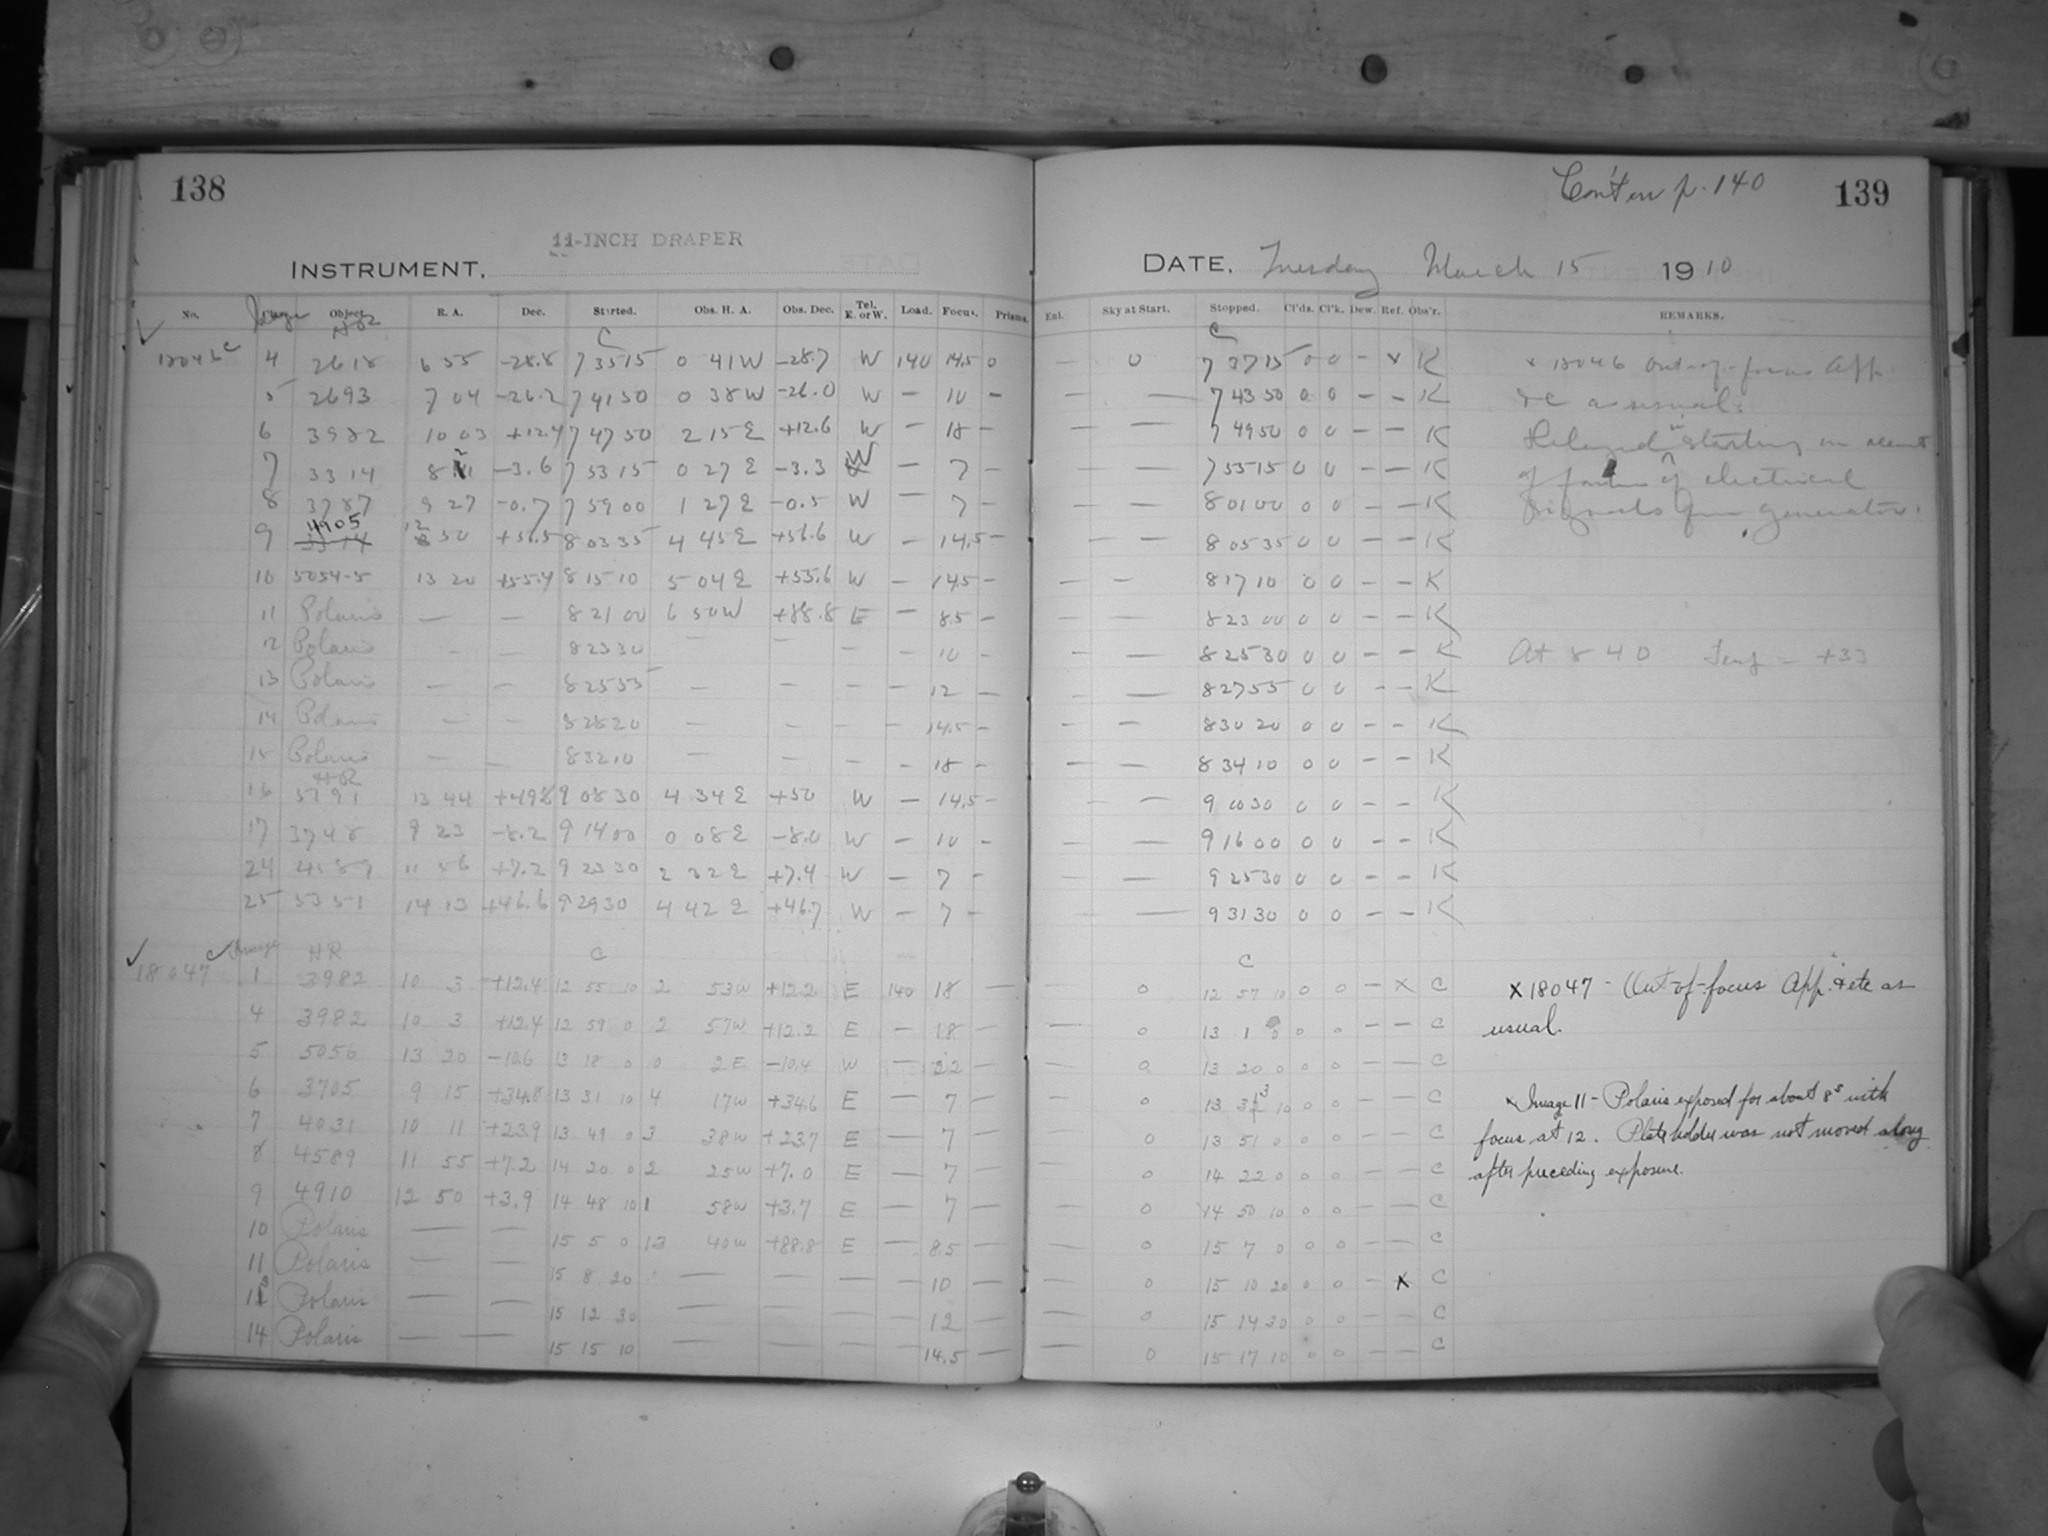 138
11-INCH DRAPER
INSTRUMENT.
No. Image Object R. A. Dec. Started Obs. H. A. Obs. Dec. Tel. E. or W. Load. Focus. Prisms.
HR C
4 2618 6 55 -28.8 7 35 15 0 41 W -28.7 W 140 14.5 0
5 2693 7 04 -26.2 7 41 50 0 38 W -26.0 W — 10 —
6 3982 10 03 +12.4 7 47 50 2 15 E +12.6 W — 18 —
7 3314 8 21 -3.6 7 53 15 0 27 E -3.3 W — 7 —
8 3787 9 27 -0.7 7 59 00 1 27 E -0.5 W — 7 —
9 4905 12 50 +56.5 8 03 35 4 45 E +56.6 W — 14.5 —
10 5054-5 13 20 +55.4 8 15 10 5 04 E +55.6 W — 14.5 —
11 Polaris — — 8 21 00 6 50 W +88.8 E — 8.5 —
12 Polaris — — 8 23 30 — — — — 10 —
13 Polaris — — 8 25 55 — — — — 12 —
14 Polaris — — 8 28 20 — — — — 14.5 —
15 Polaris — — 8 32 10 — — — — 18 —
HR
16 5191 13 44 +49.8 9 08 30 4 34 E +50 W — 14.5 —
17 3748 9 23 -8.2 9 14 00 0 08 E -8.0 W — 10 —
24 4589 11 56 +7.2 9 23 30 2 32 E +7.4 W — 7 —
25 5351 14 13 +46.6 9 29 30 4 42 E +46.7 W — 7 —
Image HR C
18047 1 3982 10 3 +12.4 12 55 10 2 53 W +12.2 E 140 18 —
4 3982 10 3 +12.4 12 59 0 2 57 W +12.2 E — 18 —
5 5056 13 20 -10.6 13 18 0 0 2 E -10.4 W — 22 —
6 3705 9 15 +34.8 13 31 10 4 17 W +34.6 E — 7 —
7 4031 10 11 +23.9 13 49 0 3 38 W +23.7 E — 7 —
8 4589 11 55 +7.2 14 20 0 2 25 W +7.0 E — 7 —
9 4910 12 50 +3.9 14 48 10 1 58 W +3.7 E — 7 —
10 Polaris — — 15 5 0 13 40 W +88.8 E — 8.5 —
11 Polaris — — 15 8 20 — — — — 10 —
13 Polaris — — 15 12 30 — — — — 12 —
14 Polaris — — 15 15 10 — — — — 14.5 —
Con't on p. 140
139
DATE. Tuesday March 15 1910
Ent. Sky at Start. Stopped. Cl'ds. Cl'k. Dew. Ref. Obs'r. REMARKS.
C
— 0 7 37 15 0 0 — x K x 18046 Out-of-focus App.
— — 7 43 50 0 0 — — K &c as usual.
— — 7 49 50 0 0 — — K Delayed in starting on account
— — 7 55 15 0 0 — — K of failure of electrical
— — 8 01 00 0 0 — — K signals from generator.
— — 8 05 35 0 0 — — K
— — 8 17 10 0 0 — — K
— — 8 23 00 0 0 — — K
— — 8 25 30 0 0 — — K At 8 40 Temp = +33
— — 8 27 55 0 0 — — K
— — 8 30 20 0 0 — — K
— — 8 34 10 0 0 — — K
— — 9 10 30 0 0 — — K
— — 9 16 00 0 0 — — K
— — 9 25 30 0 0 — — K
— — 9 31 30 0 0 — — K
C
0 12 57 10 0 0 — x C x 18047 - Out-of-focus App. & etc as
— 0 13 1 0 0 0 — — C usual.
0 13 20 0 0 0 — — C
— 0 13 33 10 0 0 — — C x Image 11 - Polaris exposed for about 8s with
— 0 13 51 0 0 0 — — C focus at 12. Plate holder was not moved along
— 0 14 22 0 0 0 — — C after preceding exposure.
— 0 14 50 10 0 0 — — C
— 0 15 7 0 0 0 — — C
— 0 15 10 20 0 0 — x C
— 0 15 14 30 0 0 — — C
— 0 15 17 10 0 0 — — C